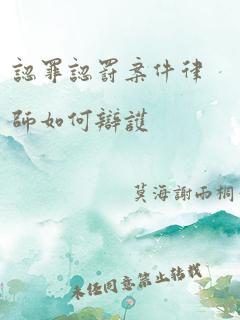 認罪認罰案件律
師如何辯護
莫海謝雨桐
未經同意禁止轉載